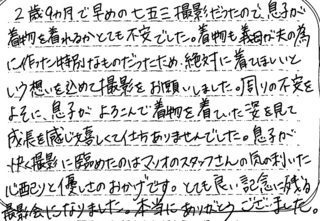 2歳9カ月で早めの七五三撮影だったので、息子が
着物を着れるかとても不安でした。着物も義母が夫の為
に作った特別なものだったため、絶対に着てほしいと
いう想いを込めて撮影をお願いしました。周りの不安を
よそに、息子がよろこんで着物を着ていた姿を見て
成長を感じ嬉しくて仕方ありませんでした。息子が
快く撮影に臨めたのはマリオのスタッフさんの気の利いた
心配りと優しさのおかげです。とても良い記念に残る
撮影会になりました。本当にありがとうございました。